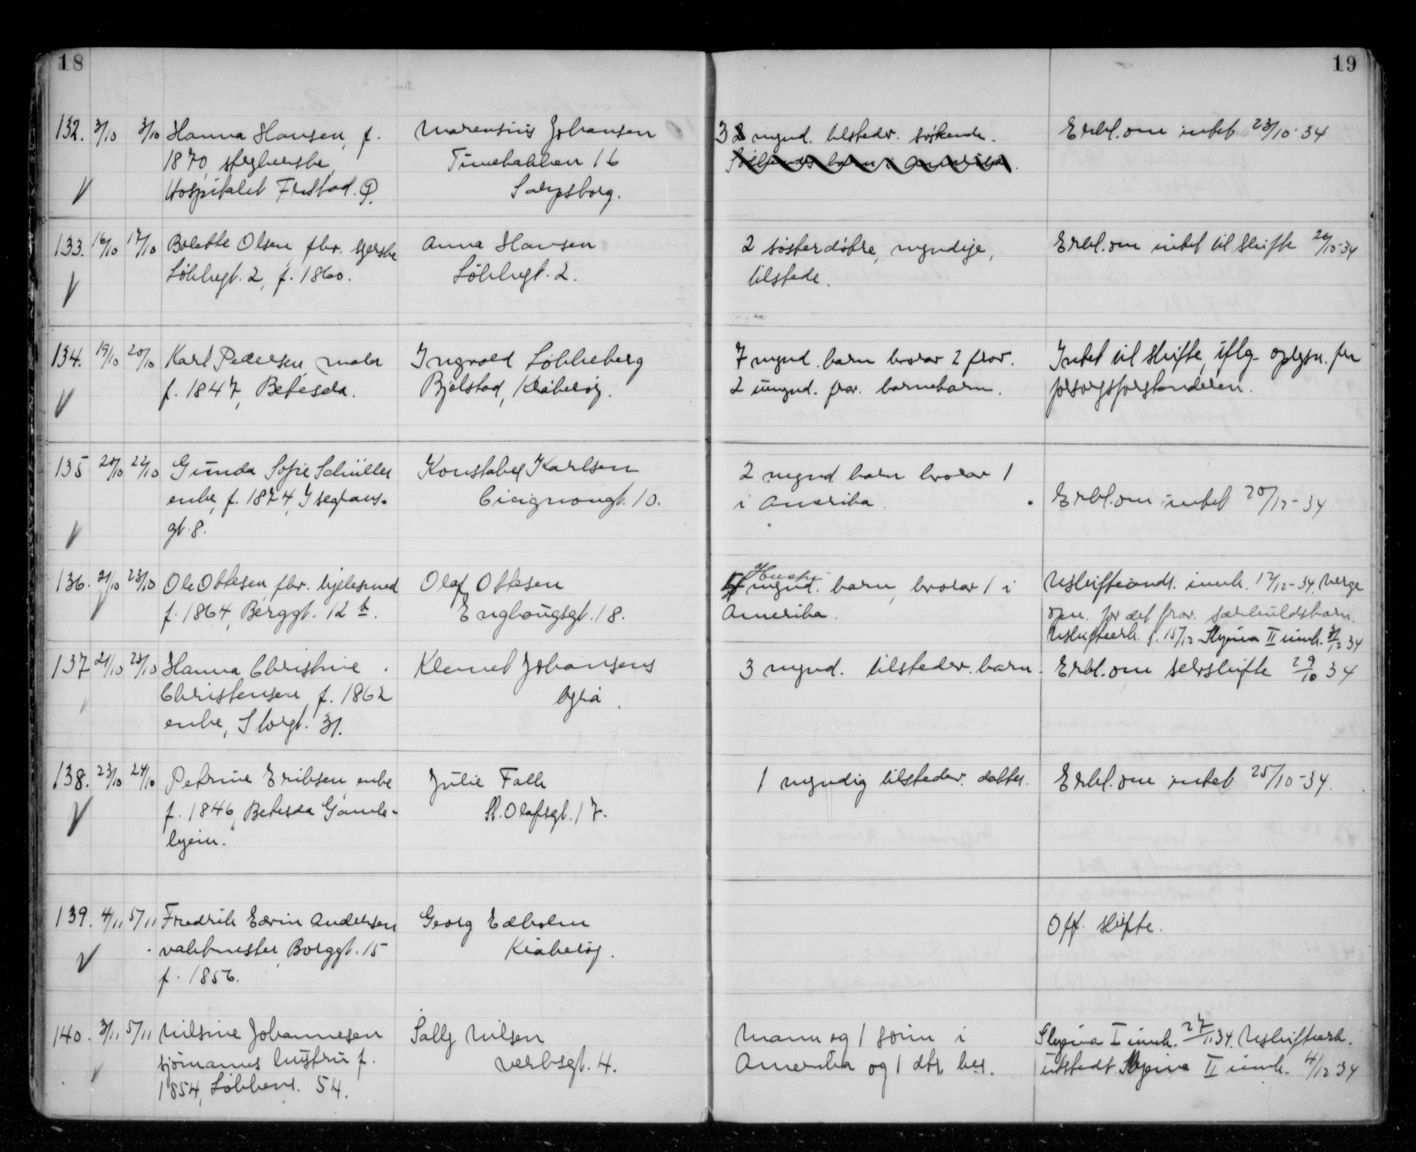 18
19
132. 3/10 3/10 Hanna Hansen, f. Marensius Johansen 3 mynd. tilstedev. søskende. Erkl. om intet 23/10-34
1870, Tunebakken 16
Hospitalet Frestad. Sarpsborg.
133. 16/10 17/10 Bolette Olsen, fhv. Anna Hansen 2 søsterdøtre, myndige, Erkl. om intet til skifte 26/10-34
Løkkegt. 2, f. 1860. Løkkegt. 2. tilstede.
134. 19/10 20/10 Karl Pedersen maler Ingvald Løkkeberg 7 mynd. barn hvorav 2 frav. Intet til skifte, iflg. oplysn. fra
f. 1847, Betesda. Bjølstad, Kråkerøy. 2 umynd. frav. barnebarn. forsorgsforstanderen.
135 20/10 22/10 Gunda Sofie Schüller Konstabel Karlsen 2 mynd barn hvorav 1
enke, f. 1874, Isegrans- Cicignongt. 10. i Amerika. Erkl. om intet 20/12-34
gt. 8.
136. 21/10 23/10 Ole Ottesen, fhv. Olaf Ottesen mynd. barn, hvorav 1 i Uskifteandr. innk. 12/12-34, Verge
f. 1864, Berggt. 12 b. Enghaugsgt. 18. Amerika. opn. for det frav. særkuldsbarn.
Uskifteerkl. f. 15/12 Skjema II innk. 12 34
137 21/10 23/10 Hanna Christine Klemet Johansens 3 mynd. tilstedev. barn. Erkl. om selvskifte 29/10 34
Christensen f. 1862
enke, Storgt. 31.
138. 23/10 24/10 Petrine Eriksen, enke Julie Falk 1 myndig tilstedev. datter. Erkl. om intet 25/10-34.
f. 1846, Betesda Gamle- St. Olafsgt. 17.
hjem.
139. 4/11 5/11 Fredrik Edvin Andersen Georg Edholm Off. skifte.
vaktmester, Borggt. 15 Kråkerøy.
f. 1856.
140. 3/11 5/11 Nilsine Johannesen Sally Nilsen Mann og 1 sønn i Skjema I innk. 27/11 34 Uskifteerk.
sjømanns hustru f. Verksgt. 4. Amerika og 1 dtr. her. utstedt Skjema II innk. 4/12 34
1854, 54.